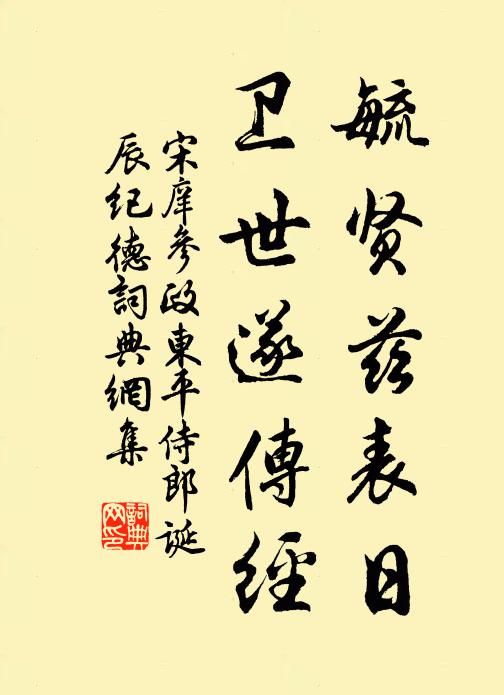 毓贤兹表日
卫世遂傳經
宋庠參政東平侍郎誕
辰纪德詞典網集
詞典网印